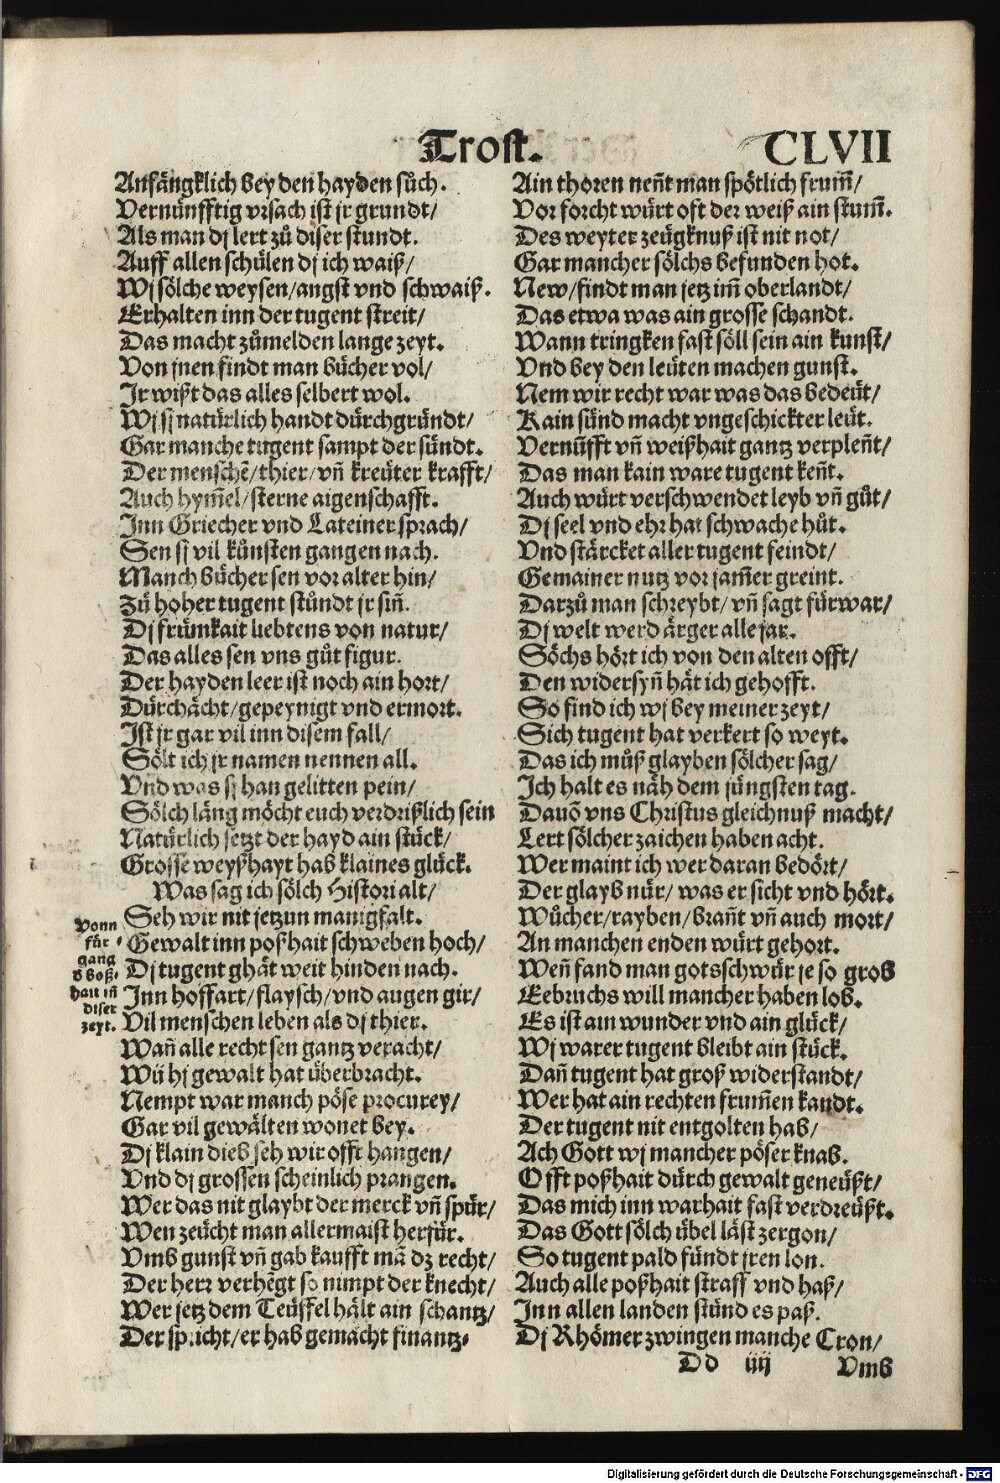 Trost. CLVII
Anfängklich bey den hayden sůch.
Vernünfftig vrsach ist jr grundt/
Als man dj lert zů diser stundt.
Auff allen schůlen dj ich waiß/
Wj sölche weysen/angst vnd schwaiß.
Erhalten inn der tugent streit/
Das macht zůmelden lange zeyt.
Von jnen findt man bücher vol/
Jr wißt das alles selbert wol.
Wj sj natürlich handt dürchgründt/
Gar manche tugent sampt der sündt.
Der menschē/thier/vñ kreüter krafft/
Auch hym̃el/sterne aigenschafft.
Inn Griecher vnd Lateiner sprach/
Sen sj vil kůnsten gangen nach.
Manch bücher sen vor alter hin/
Zů hoher tugent stůndt jr siñ.
Dj frümkait liebtens von natur/
Das alles sen vns gůt figur.
Der hayden leer ist noch ain hort/
Dürchächt/gepeynigt vnd ermort.
Ist jr gar vil inn disem fall/
Sölt ich jr namen nennen all.
Vnd was sj han gelitten pein/
Sölch läng möcht euch verdrißlich sein
Natürlich setzt der hayd ain stück/
Grosse weyßhayt hab klaines glück.
Was sag ich sölch Histori alt/
Seh wir nit jetzun manigfalt.
Gewalt inn poßhait schweben hoch/
Dj tugent ghät weit hinden nach.
Inn hoffart/flaysch/vnd augen gir/
Vil menschen leben als dj thier.
Wañ alle recht sen gantz veracht/
Wü hj gewalt hat überbracht.
Nempt war manch pöse procurey/
Gar vil gewälten wonet bey.
Dj klain dieb seh wir offt hangen/
Vnd dj grossen scheinlich prangen.
Wer das nit glaybt der merck vñ spür/
Wen zeücht man allermaist herfür.
Vmb gunst vñ gab kaufft mā dz recht/
Der herr verhēgt so nimpt der knecht/
Wer jetz dem Teüffel hält ain schantz/
Der spricht/er hab gemacht finantz.
Vonn
für
gang
d boß-
hait iñ
diser
zeyt.
Ain thoren neñt man spötlich frum̃/
Vor forcht würt oft der weiß ain stum̃.
Des weyter zeügknuß ist nit not/
Gar mancher sölchs befunden hot.
New/findt man jetz im̃ oberlandt/
Das etwa was ain grosse schandt.
Wann tringken fast söll sein ain kunst/
Vnd bey den leüten machen gunst.
Nem wir recht war was das bedeüt/
Kain sünd macht vngeschickter leüt.
Vernũfft vñ weißhait gantz verpleñt/
Das man kain ware tugent keñt.
Auch würt verschwendet leyb vñ gůt/
Dj seel vnd ehr hat schwache hůt.
Vnd stärcket aller tugent feindt/
Gemainer nutz vor jam̃er greint.
Darzů man schreybt/vñ sagt fürwar/
Dj welt werd ärger alle jar.
Söchs hört ich von den alten offt/
Den widersyñ hät ich gehofft.
So find ich wj bey meiner zeyt/
Sich tugent hat verkert so weyt.
Das ich můß glayben sölcher sag/
Ich halt es näh dem jüngsten tag.
Dauō vns Christus gleichnuß macht/
Lert sölcher zaichen haben acht.
Wer maint ich wer daran bedört/
Der glayb nür/ was er sicht vnd hört.
Wůcher/rayben/brañt vñ auch mort/
An manchen enden würt gehort.
Weñ fand man gotsschwür je so grob
Eebruchs will mancher haben lob.
Es ist ain wunder vnd ain glück/
Wj warer tugent bleibt ain stück.
Dañ tugent hat groß widerstandt/
Wer hat ain rechten frum̃en kandt.
Der tugent nit entgolten hab/
Ach Gott wj mancher pöser knab.
Offt poßhait dürch gewalt geneüßt/
Das mich inn warhait fast verdreüßt.
Das Gott sölch übel läst zergon/
So tugent pald fündt jren lon.
Auch alle poßhait straff vnd haß/
Inn allen landen stünd es paß.
Dj Rhömer zwingen manche Cron/
Dd iiij Vmb
Digitalisierung gefördert durch die Deutsche Forschungsgemeinschaft - DFG